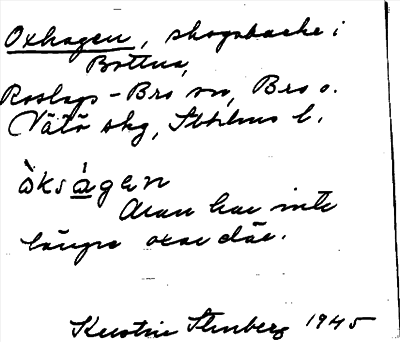 Oxhagen, skogsbacke i
Bottna,
Roslags-Bro sn, Bro o.
Vätö skg, Sthlms l.
òksá̱gen
Man har inte
längre oxar där.
Kerstin Stenberg 1945